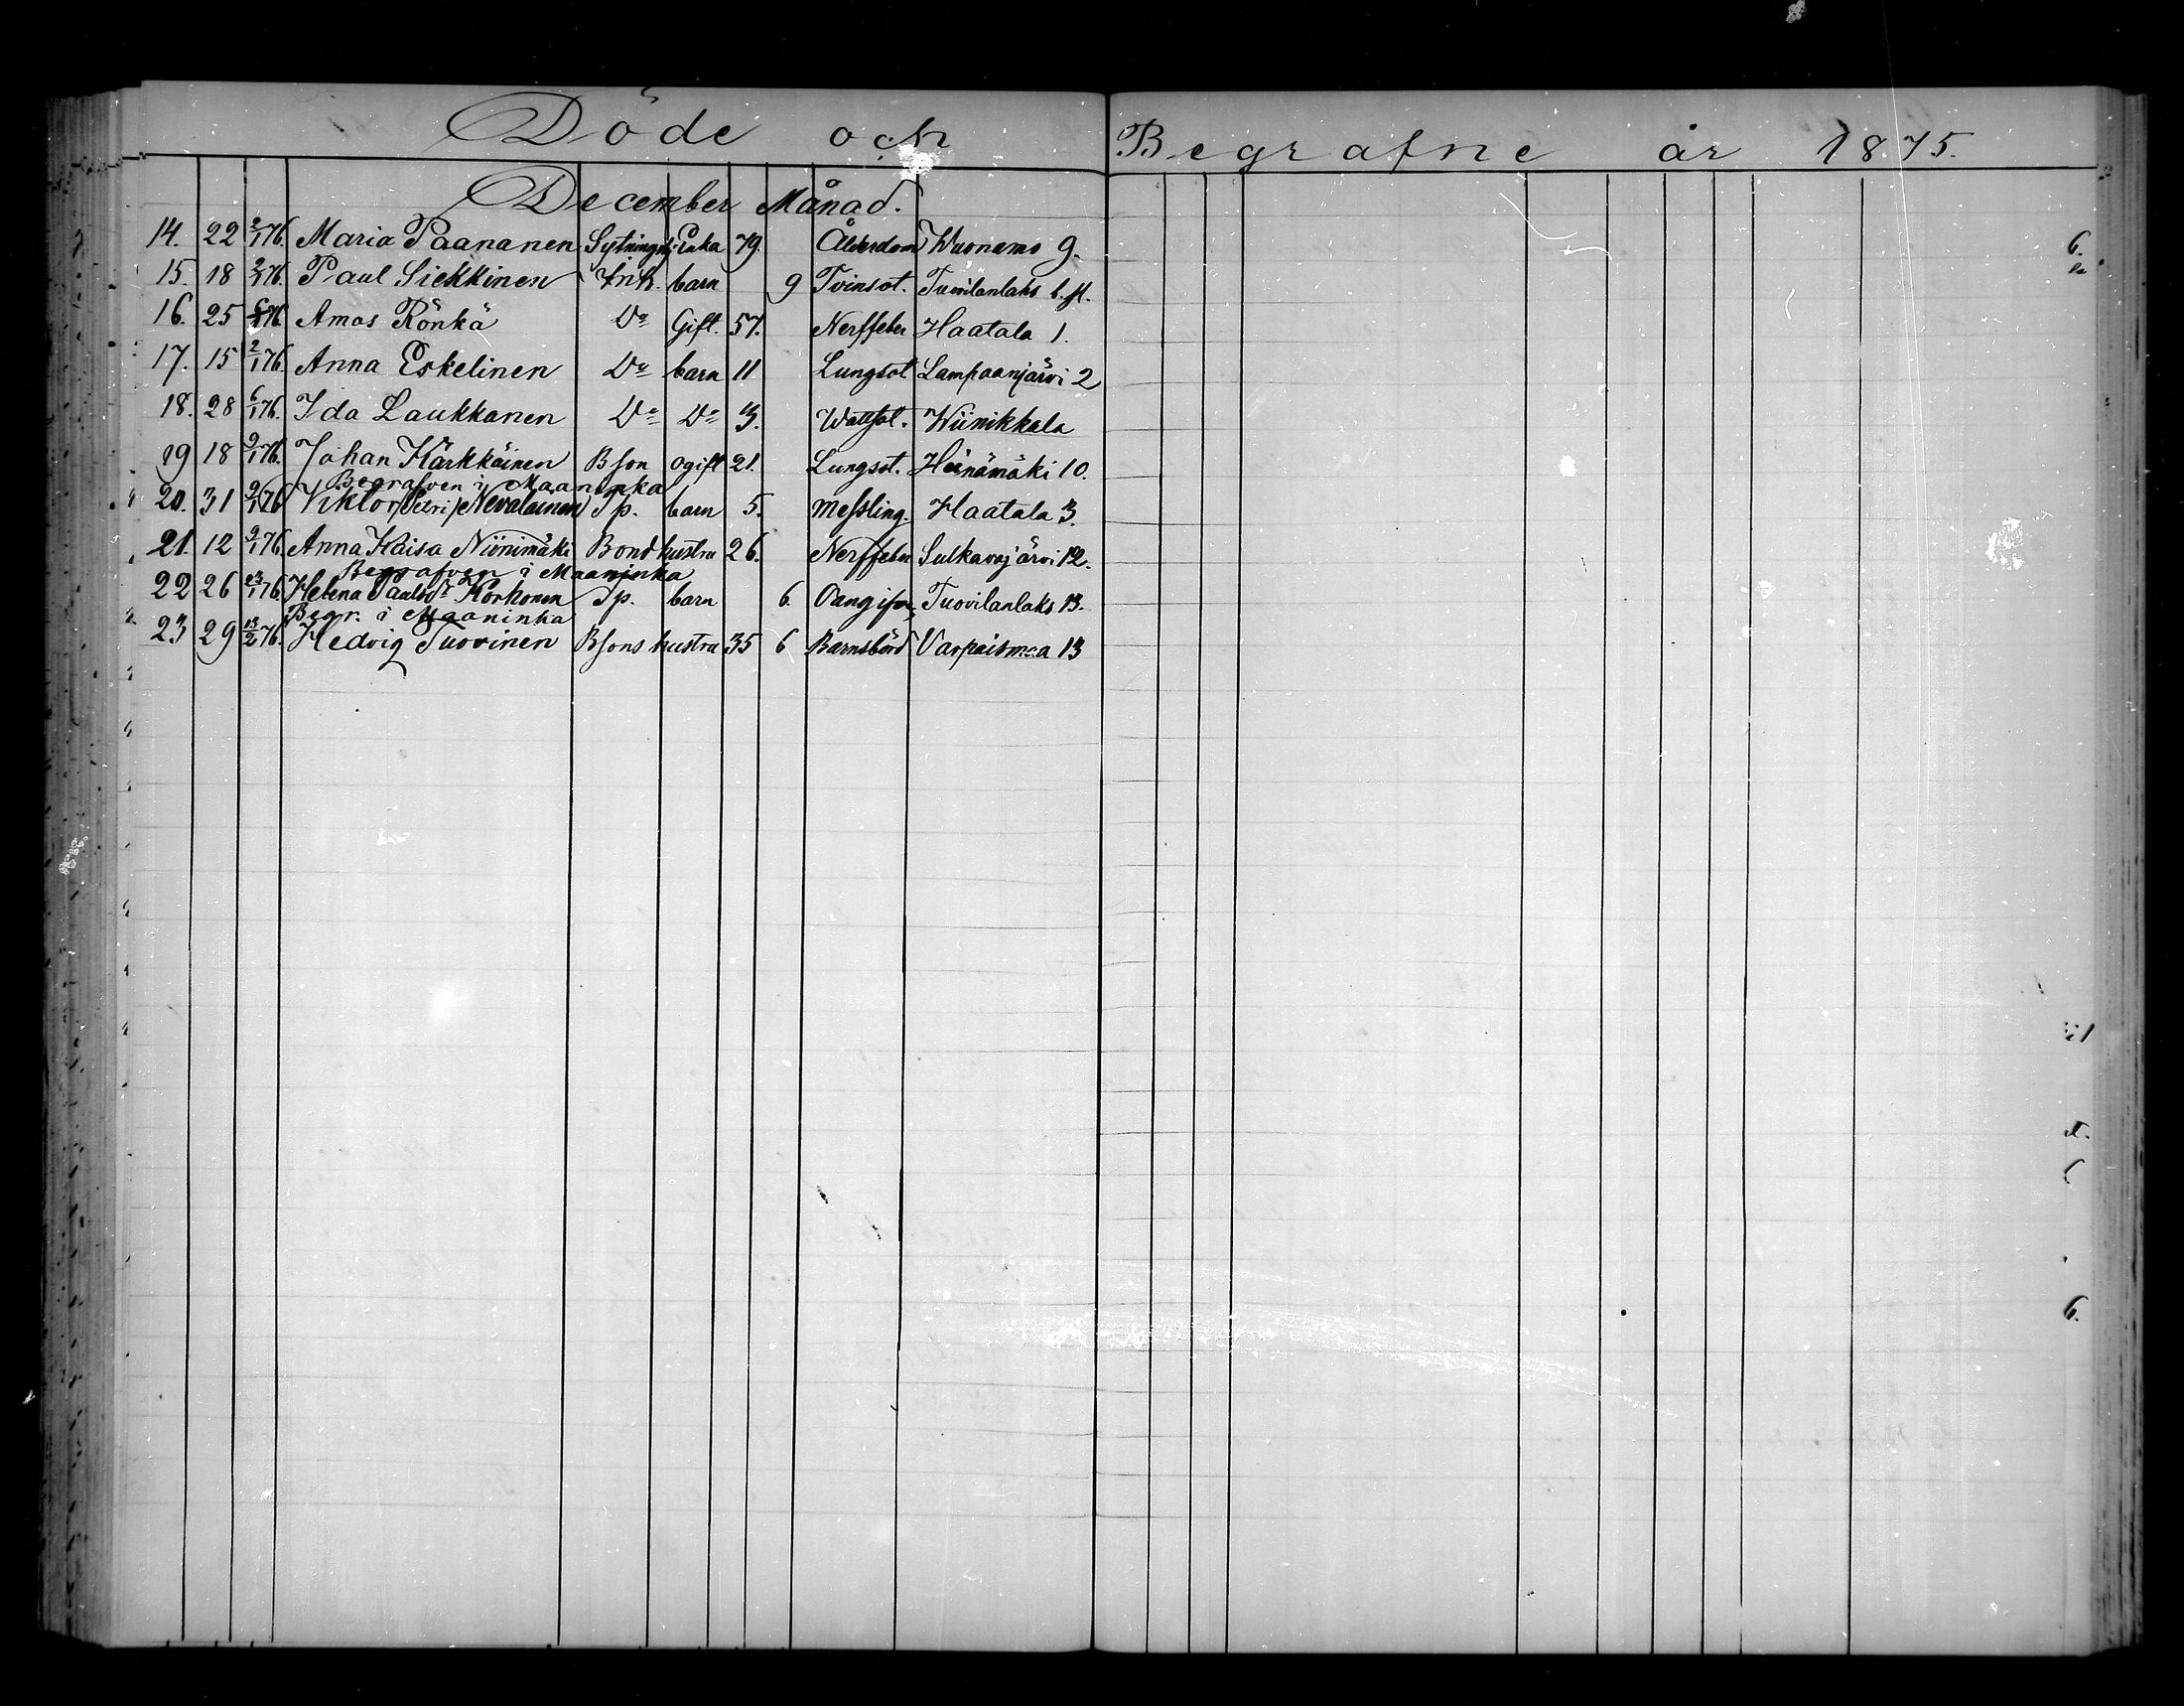 Döde och Begrafne år 1875.
December Månad.
14. 22 2/1 76. Maria Paananen Sytningshj. Enka 79. Ålderdom Wuonamo 9.
15. 18 2/1 76. Paul Siekkinen Inh. barn 9 Tvinsot. Tuovilanlaks l. fl.
16. 25 6/1 76. Amos Rönkä Do Gift. 57. Nerffeber Haatala 1.
17. 15 2/1 76. Anna Eskelinen Do barn 11 Lungsot Lampaanjärvi 2
18. 28 6/1 76. Ida Laukkanen Do Do 3. Wattsot. Wiinikkala
19 18 9/1 76. Johan Kärkkäinen Bson ogift 21. Lungsot. Heinämäki 10.
Begrafven i Maaninka
20. 31 9/1 76 Viktor /Petri/ Nevalainen Tp. barn 5. Messling. Haatala 3.
21. 12 9/1 76. Anna Kaisa Niinimäki Bond hustru 26. Nerffeber Sulkavajärvi 12.
Begrafven i Maaninka
22 26 23/1 76. Helena Paulsdr Korhonen Tp. barn 6. Oangifven Tuovilanlaks 13.
Begr. i Maaninka
23 29 13/2 76. Hedvig Tuovinen Bsons hustru 35 6 Barnsbörd Varpaismaa 13